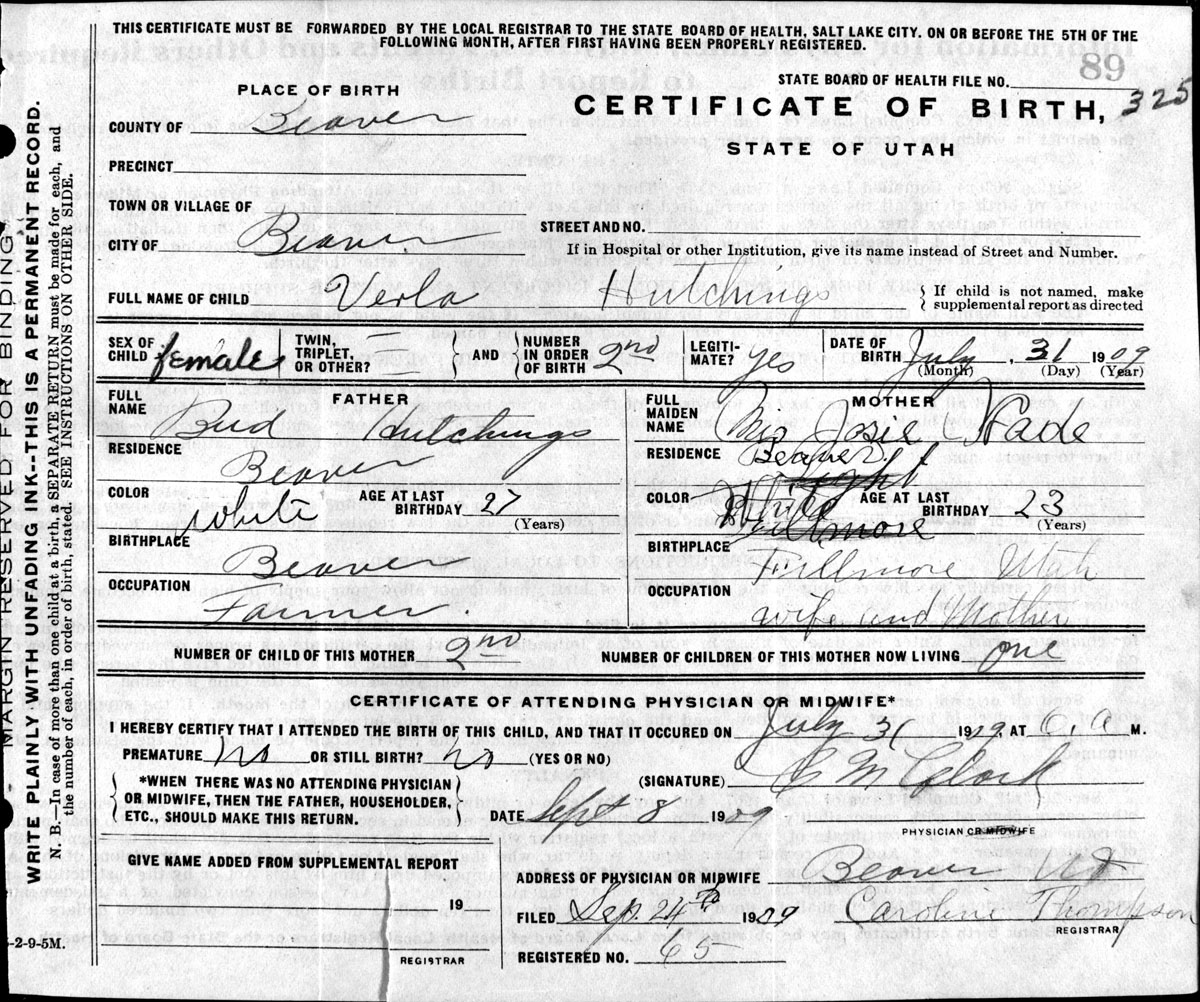 THIS CERTIFICATE MUST BE FORWARDED BY THE LOCAL REGISTRAR TO THE STATE BOARD OF HEALTH, SALT LAKE CITY. ON OR BEFORE THE 5TH OF THE
FOLLOWING MONTH, AFTER FIRST HAVING BEEN PROPERLY REGISTERED.
89
STATE BOARD OF HEALTH FILE NO.
PLACE OF BIRTH
CERTIFICATE OF BIRTH, 325
COUNTY OF Beaver
STATE OF UTAH
PRECINCT
TOWN OR VILLAGE OF
STREET AND NO.
CITY OF Beaver
If in Hospital or other Institution, give its name instead of Street and Number.
FULL NAME OF CHILD Verla Hutchings { If child is not named, make
supplemental report as directed
SEX OF CHILD female TWIN, TRIPLET, OR OTHER? } AND { NUMBER IN ORDER OF BIRTH 2nd LEGITI-MATE? yes DATE OF BIRTH July, 31 1909
(Month) (Day) (Year)
FULL NAME FATHER
Bud Hutchings
RESIDENCE
Beaver
COLOR White AGE AT LAST BIRTHDAY 27
(Years)
BIRTHPLACE
Beaver
OCCUPATION
Farmer.
FULL MAIDEN NAME MOTHER
Mrs Josie Wade
RESIDENCE Beaver.
COLOR White AGE AT LAST BIRTHDAY 23
(Years)
Fillmore
BIRTHPLACE
Fillmore Utah
OCCUPATION
wife and Mother
NUMBER OF CHILD OF THIS MOTHER 2nd NUMBER OF CHILDREN OF THIS MOTHER NOW LIVING one
CERTIFICATE OF ATTENDING PHYSICIAN OR MIDWIFE*
I HEREBY CERTIFY THAT I ATTENDED THE BIRTH OF THIS CHILD, AND THAT IT OCCURED ON July 31 1909. AT M.
PREMATURE No OR STILL BIRTH? No (YES OR NO)
(SIGNATURE) Clark
{ *WHEN THERE WAS NO ATTENDING PHYSICIAN
OR MIDWIFE, THEN THE FATHER, HOUSEHOLDER,
ETC., SHOULD MAKE THIS RETURN. }
DATE Sept 8 1909
PHYSICIAN OR MIDWIFE
GIVE NAME ADDED FROM SUPPLEMENTAL REPORT
19
REGISTRAR
ADDRESS OF PHYSICIAN OR MIDWIFE Beaver Ut
FILED Sep. 24th 1909 Caroline Thompson
REGISTRAR
REGISTERED NO. 65
-2-9-5M.
MARGIN RESERVED FOR BINDING
WRITE PLAINLY WITH UNFADING INK--THIS IS A PERMANENT RECORD.
N. B.—In case of more than one child at a birth, a SEPARATE RETURN must be made for each, and
the number of each, in order of birth, stated. SEE INSTRUCTIONS ON OTHER SIDE.